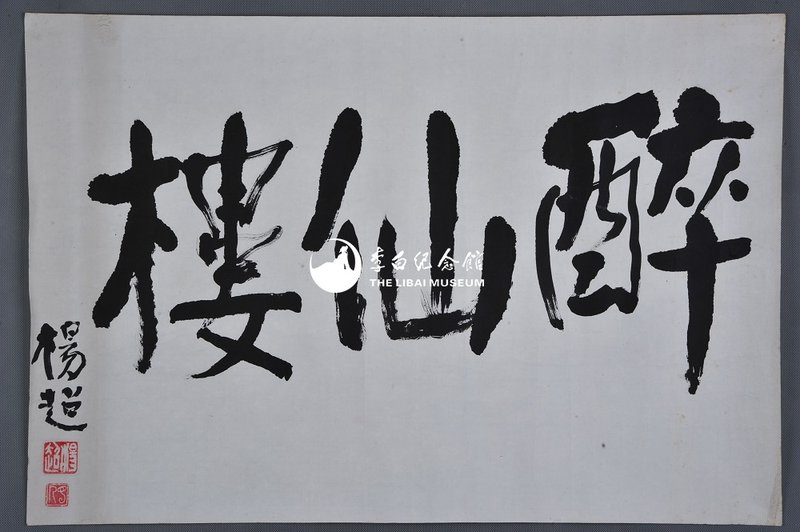 醉仙樓
楊超
李白纪念館
THE LIBAI MUSEUM